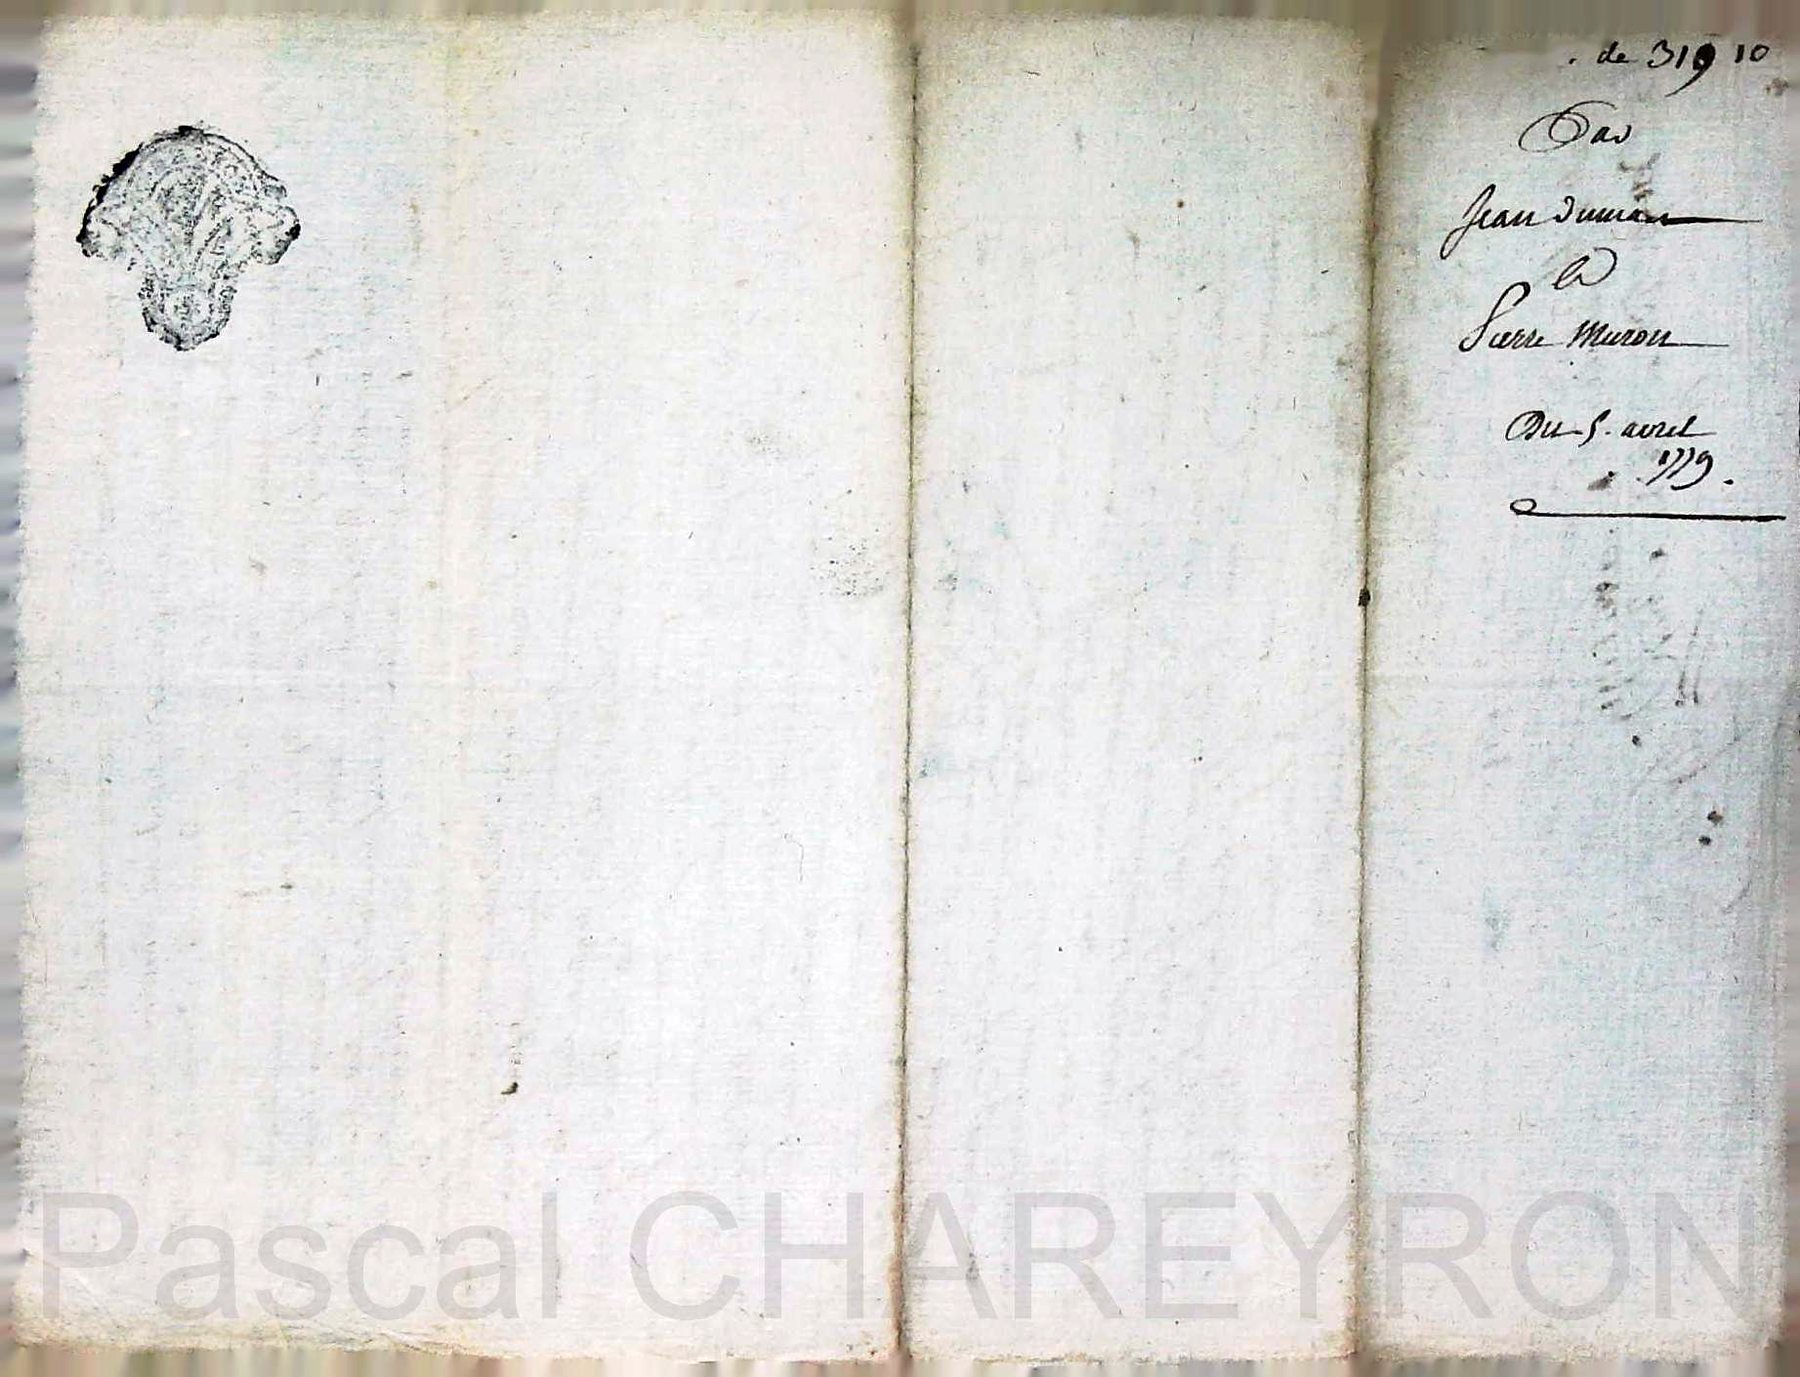 . de 319 10
Par
Jean dumas
a
Pierre Muron
Du 5. avril
1779.
Pascal CHAREYRON